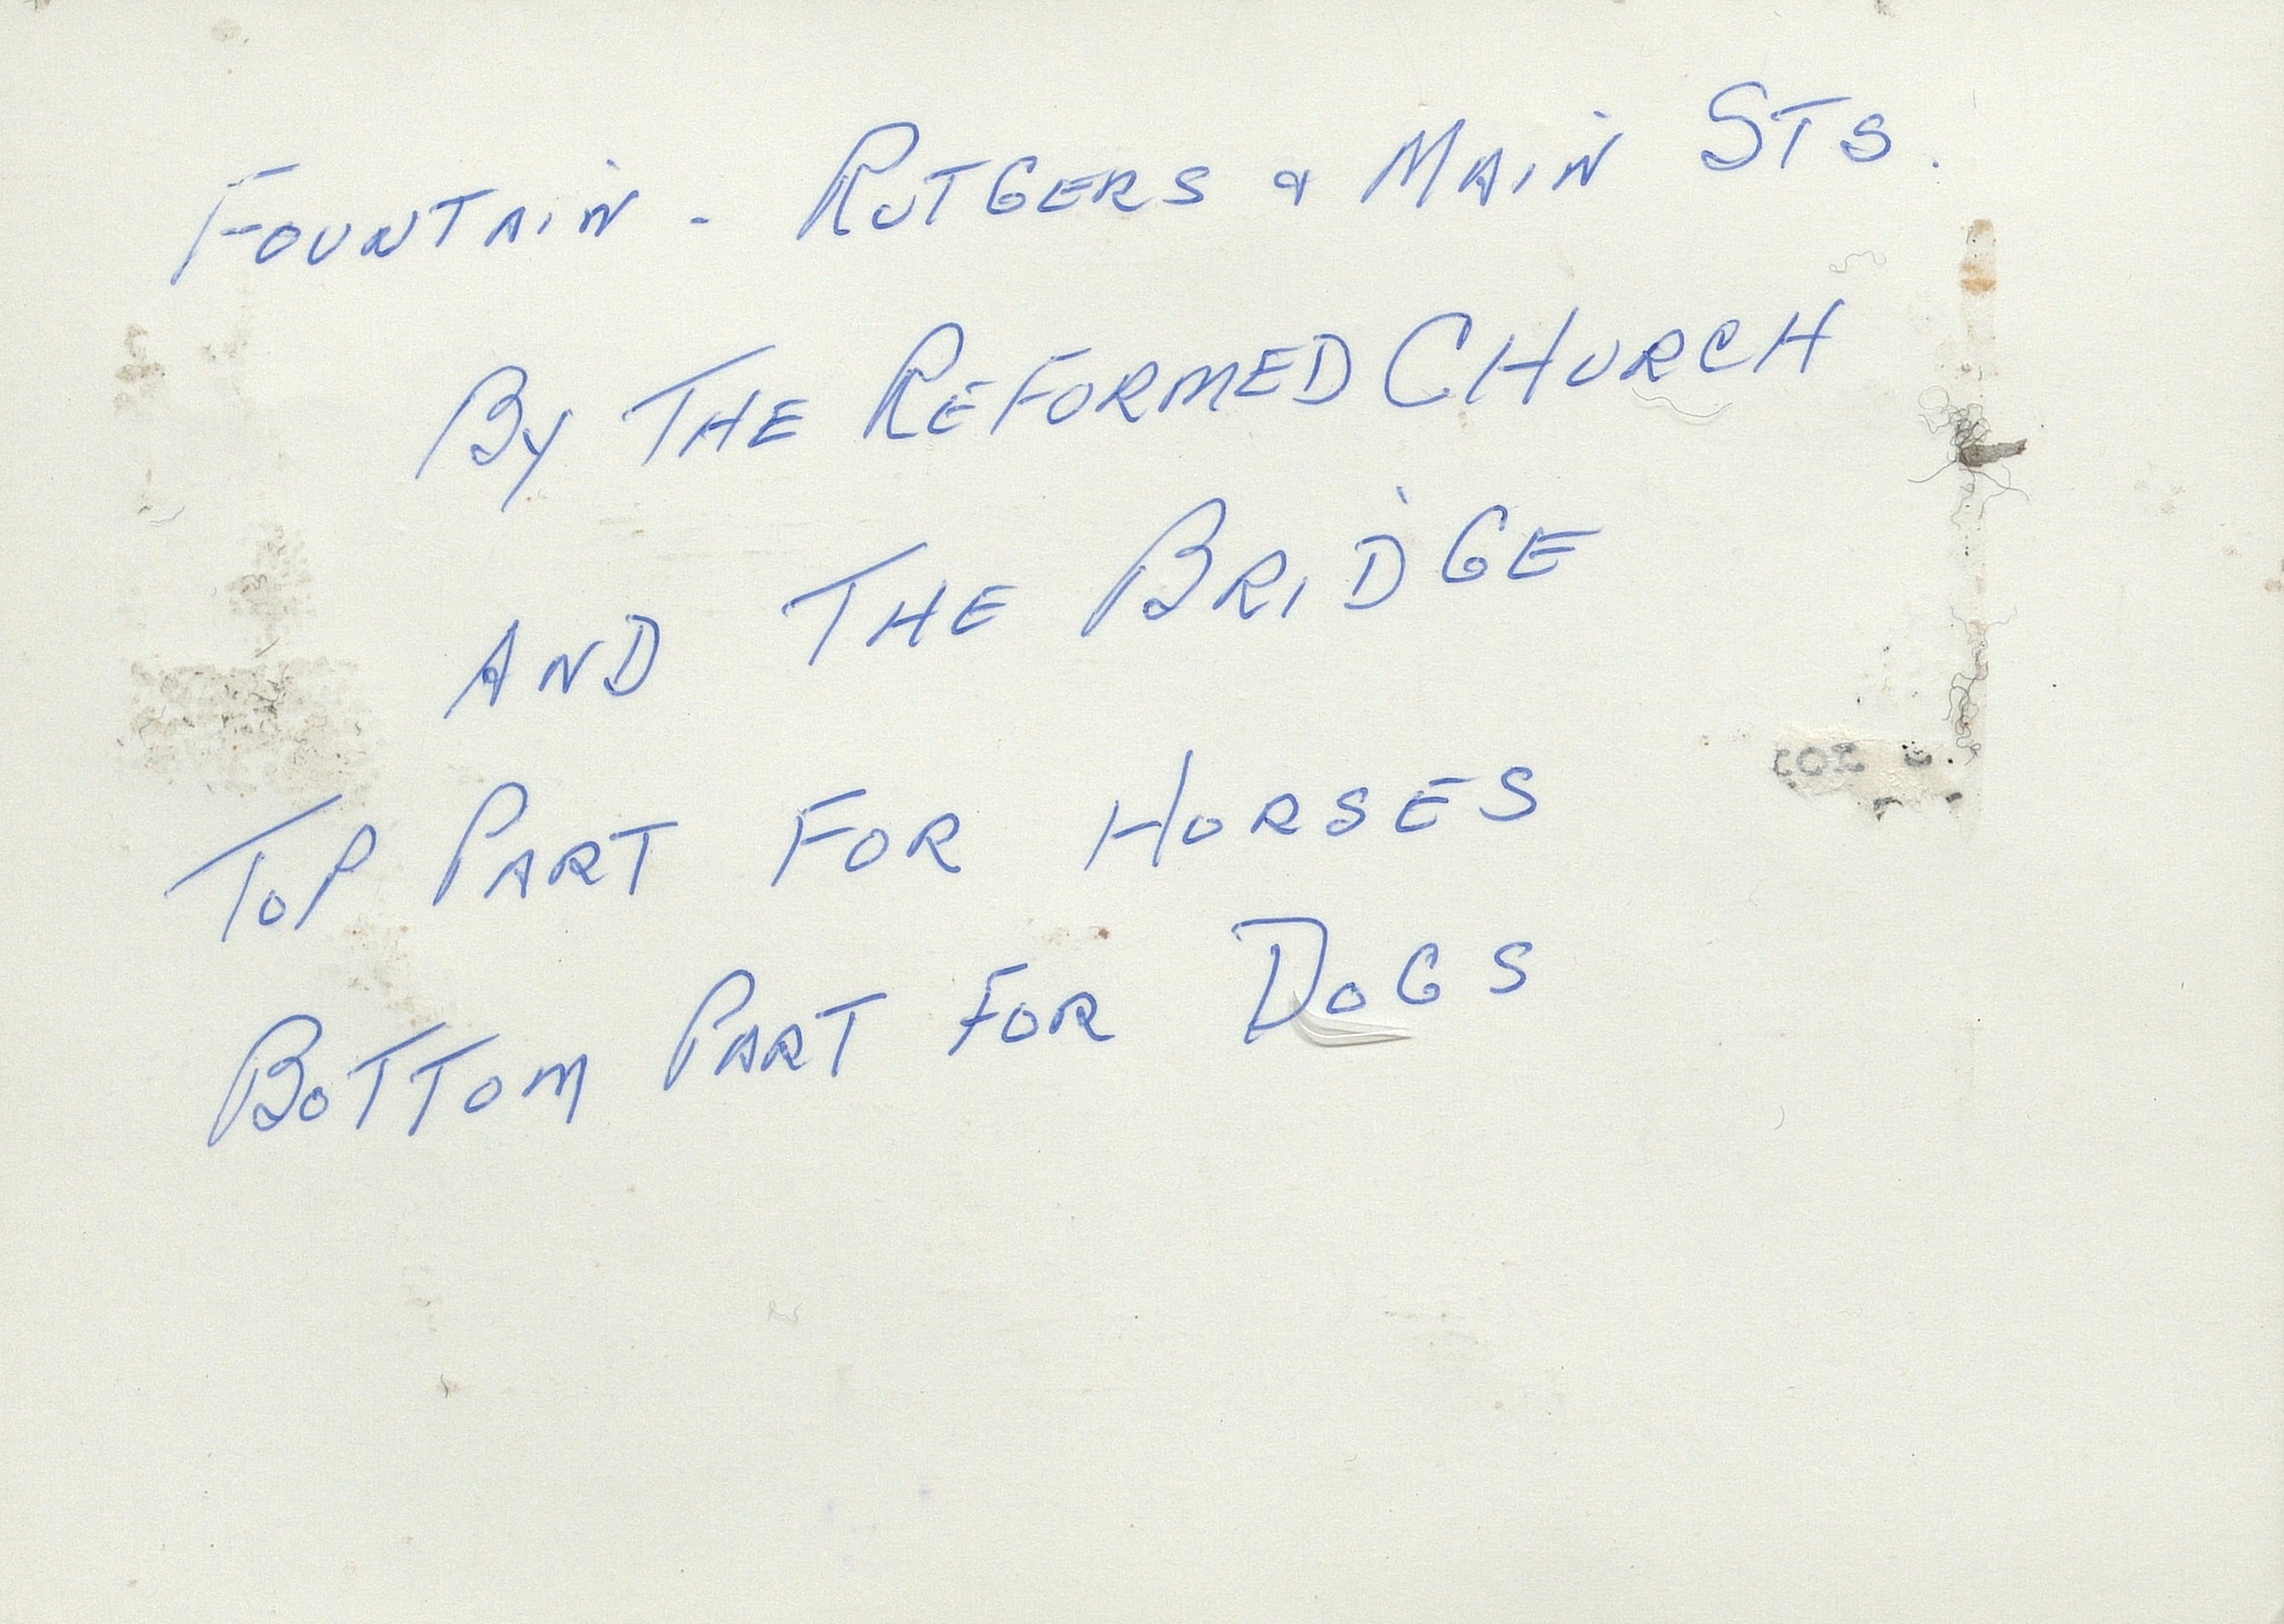 FOUNTAIN - RUTGERS & MAIN STS.
BY THE REFORMED CHURCH
AND THE BRIDGE
TOP PART FOR HORSES
BOTTOM PART FOR DOGS